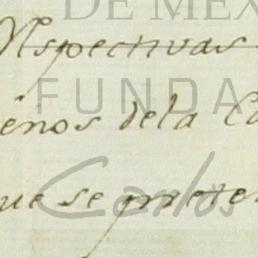 DE MEX
Respectivas
FUNDA
enos dela Ca
Carlos
que se preten